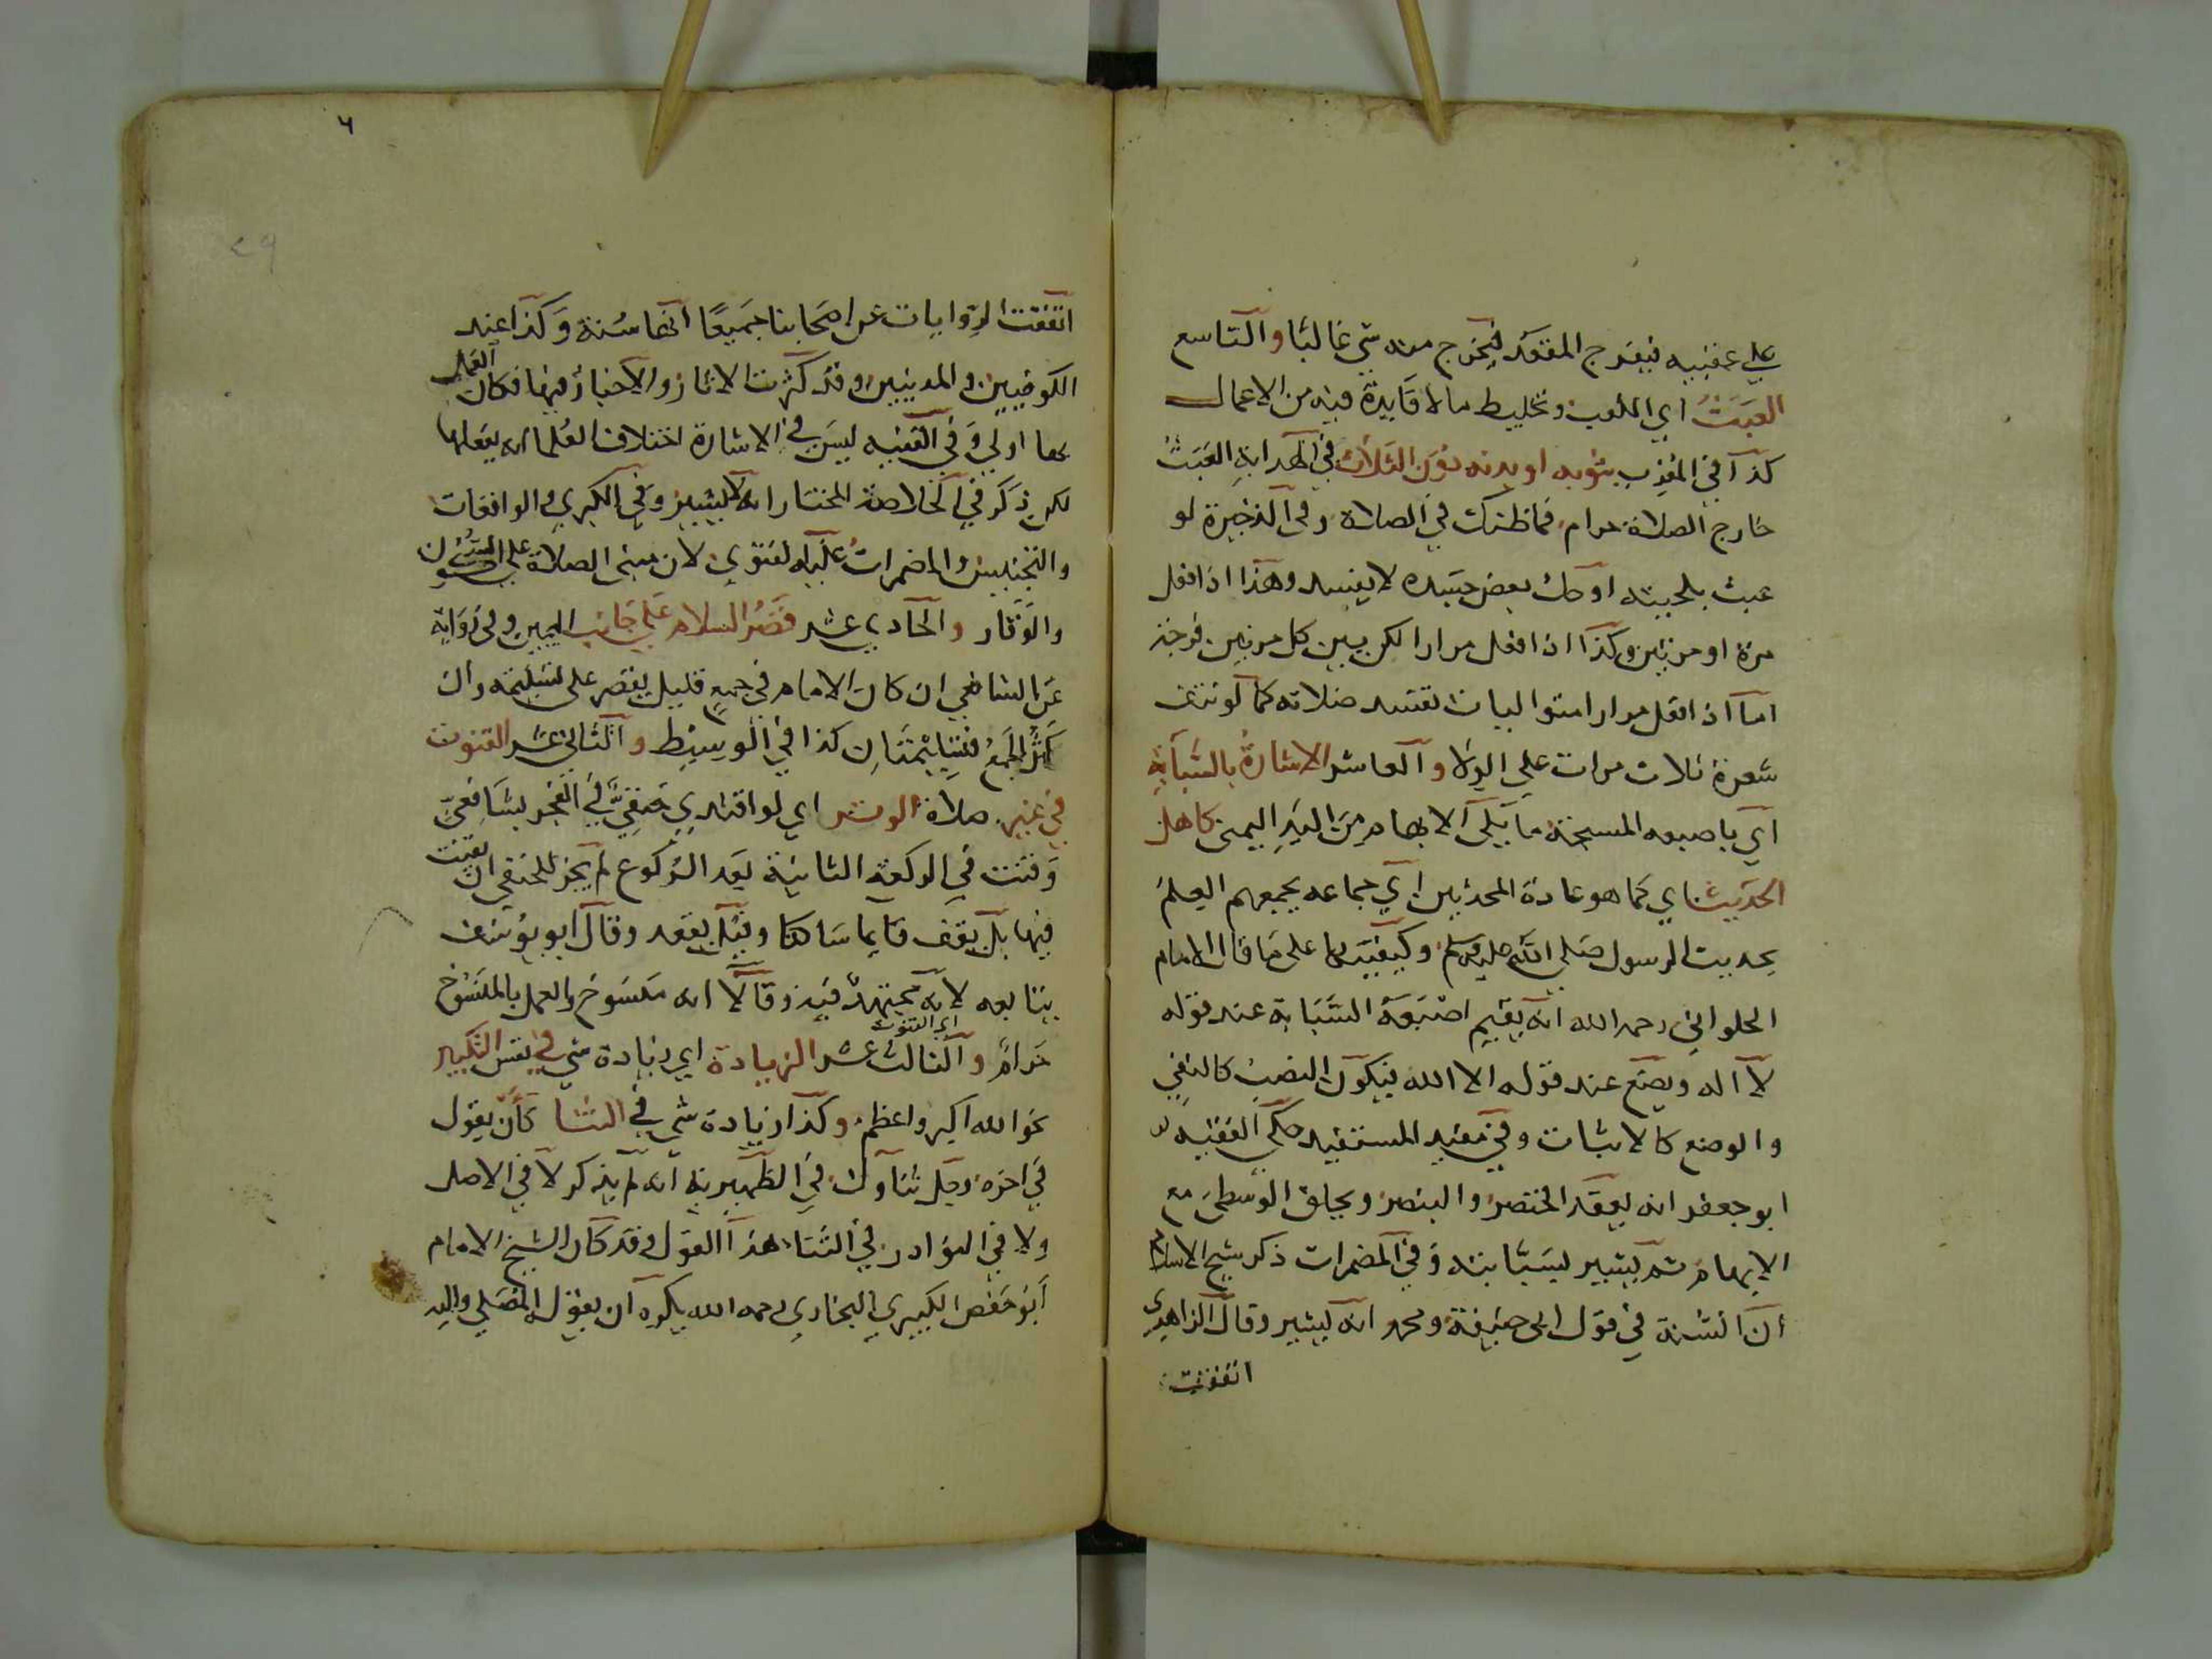 علي عقبيه فيفرج المقعد فيخرج منه شي غالبا والتاسع
العبث اي اللعب وتخليط ما لا فايدة فيه من الاعمال
كذا في المغرب بثوبه او بدنه دون الثلاث في الهداية العبث
خارج الصلاة حرام فما ظنك في الصلاة وفي الذخيرة لو
عبث بلحيته او حك بعض جسده لا يفسد وهذا اذا فعل
مرة او مرتين وكذا اذا فعل مرارا لكن بين كل مرتين فرجة
اما اذا فعل مرارا متواليات تفسد صلاته كما لو نتف
شعرة ثلاث مرات على الولا والعاشر الاشارة بالسبابة
اي باصبعه المسبحة ما يلي الابهام من اليد اليمنى كاهل
الحديث اي كما هو عادة المحدثين اي جماعه يجمعهم العلم
بحديث الرسول صلى الله عليه وسلم وكيفيتها على ما قال الامام
الحلواني رحمه الله انه يقيم اصبعه السبابة عند قوله
لا اله ويضع عند قوله الا الله فيكون النصب كالنفي
والوضع كالاثبات وفي مفيد المستفيد حكم الفقيه
ابو جعفر انه يعقد الخنصر والبنصر ويحلق الوسطى مع
الابهام ثم يشير بسبابته وفي المضمرات ذكر شيخ الاسلام
ان السنة في قول ابى حنيفة ومحمد انه يشير وقال الزاهدي
اتفقت
٦
٢٩
اتفقت الروايات عن اصحابنا جميعا انها سنة وكذا عند
الكوفيين والمدنيين وقد كثرت الاثار والاخبار فيها فكان العمل
بها اولي وفي القنيه ليس في الاشارة اختلاف العلما انه يفعلها
لكن ذكر في الخلاصة المختار انه لا يشير وفي الكبري والواقعات
والتجنيس والمضمرات عليه الفتوي لان مبنى الصلاة على السكون
والوقار والحادي عشر قصر السلام على جانب اليمين وفي رواية
عن الشافعي ان كان الامام في جمع قليل يقصر على تسليمة وان
كثر الجمع فتسليمتان كذا في الوسيط والثاني عشر القنوت
في غير صلاة الوتر اي لو اقتدي حنفي في الفجر بشافعي
وقنت في الركعة الثانية بعد الركوع لم يجز للحنفي ان يقنت
فيها بل يقف قايما ساكتا وقيل يقعد وقال ابو يوسف
يتابعه لانه مجتهد فيه وقالا انه منسوخ والعمل بالمنسوخ
حرام والثالث عشر الزيادة اي زيادة شي في نفس التكبير
اي القنوت
نحو الله اكبر واعظم وكذا زيادة شي في الثنا كان يقول
في اخره وجل ثناوك في الظهيرية انه لم يذكر لا في الاصل
ولا في النوادر في الثنا هذا القول وقد كان الشيخ الامام
ابو حفص الكبيري البخاري رحمه الله يكره ان يقول المصلي واليه